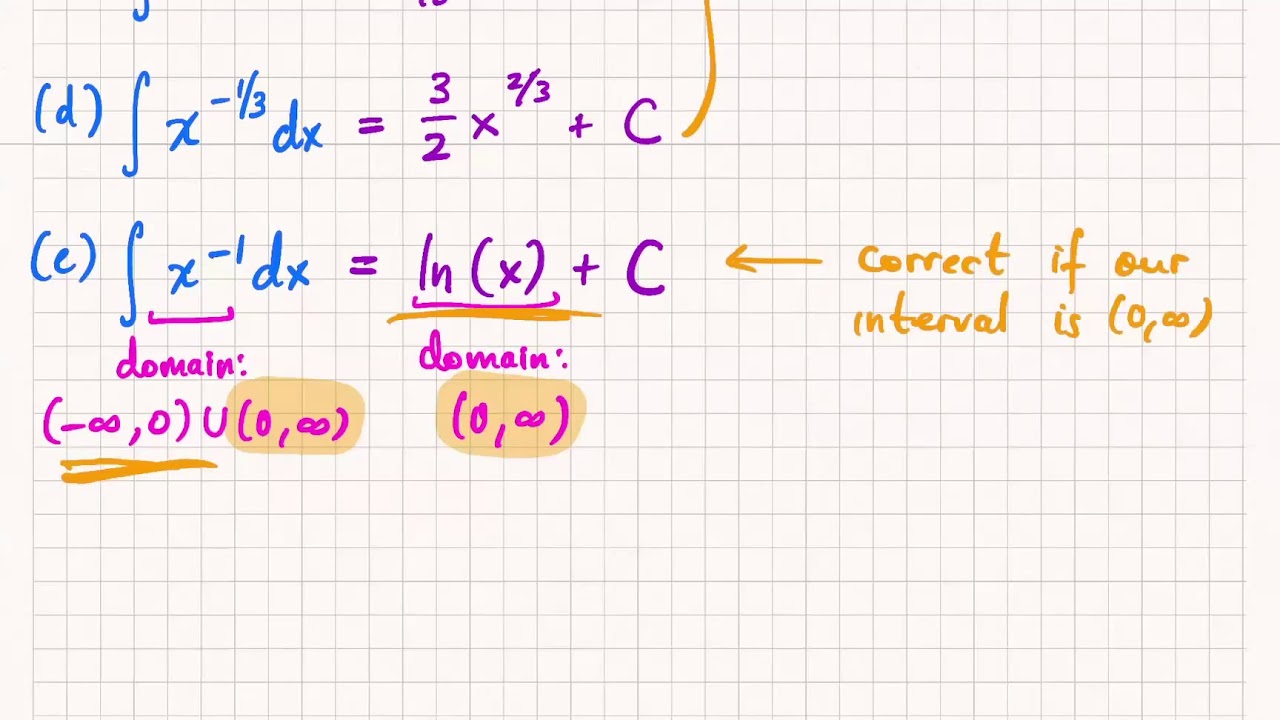 (d) ∫ x^{-1/3} dx = 3/2 x^{2/3} + C
(e) ∫ x^{-1} dx = ln(x) + C ← correct if our
interval is (0,∞)
domain: domain:
(-∞,0) ∪ (0,∞) (0,∞)